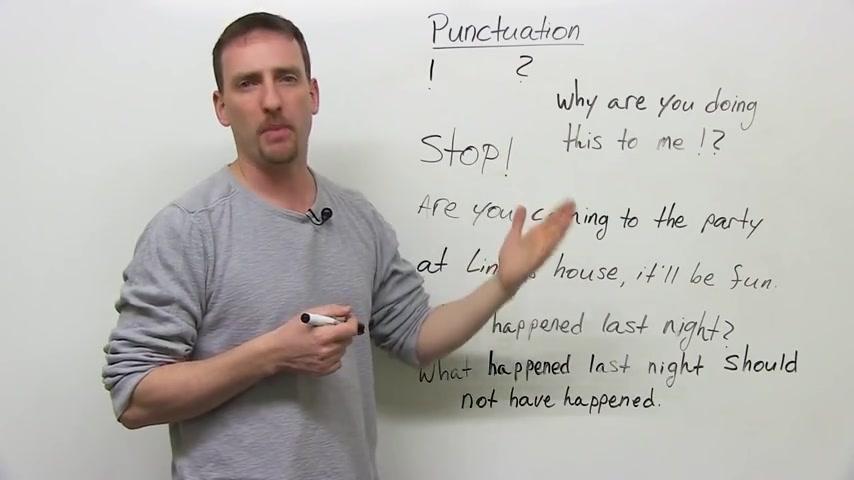 Punctuation
! ?
Why are you doing
this to me !?
Stop!
Are you coming to the party
at house, it'll be fun.
happened last night?
What happened last night should
not have happened.